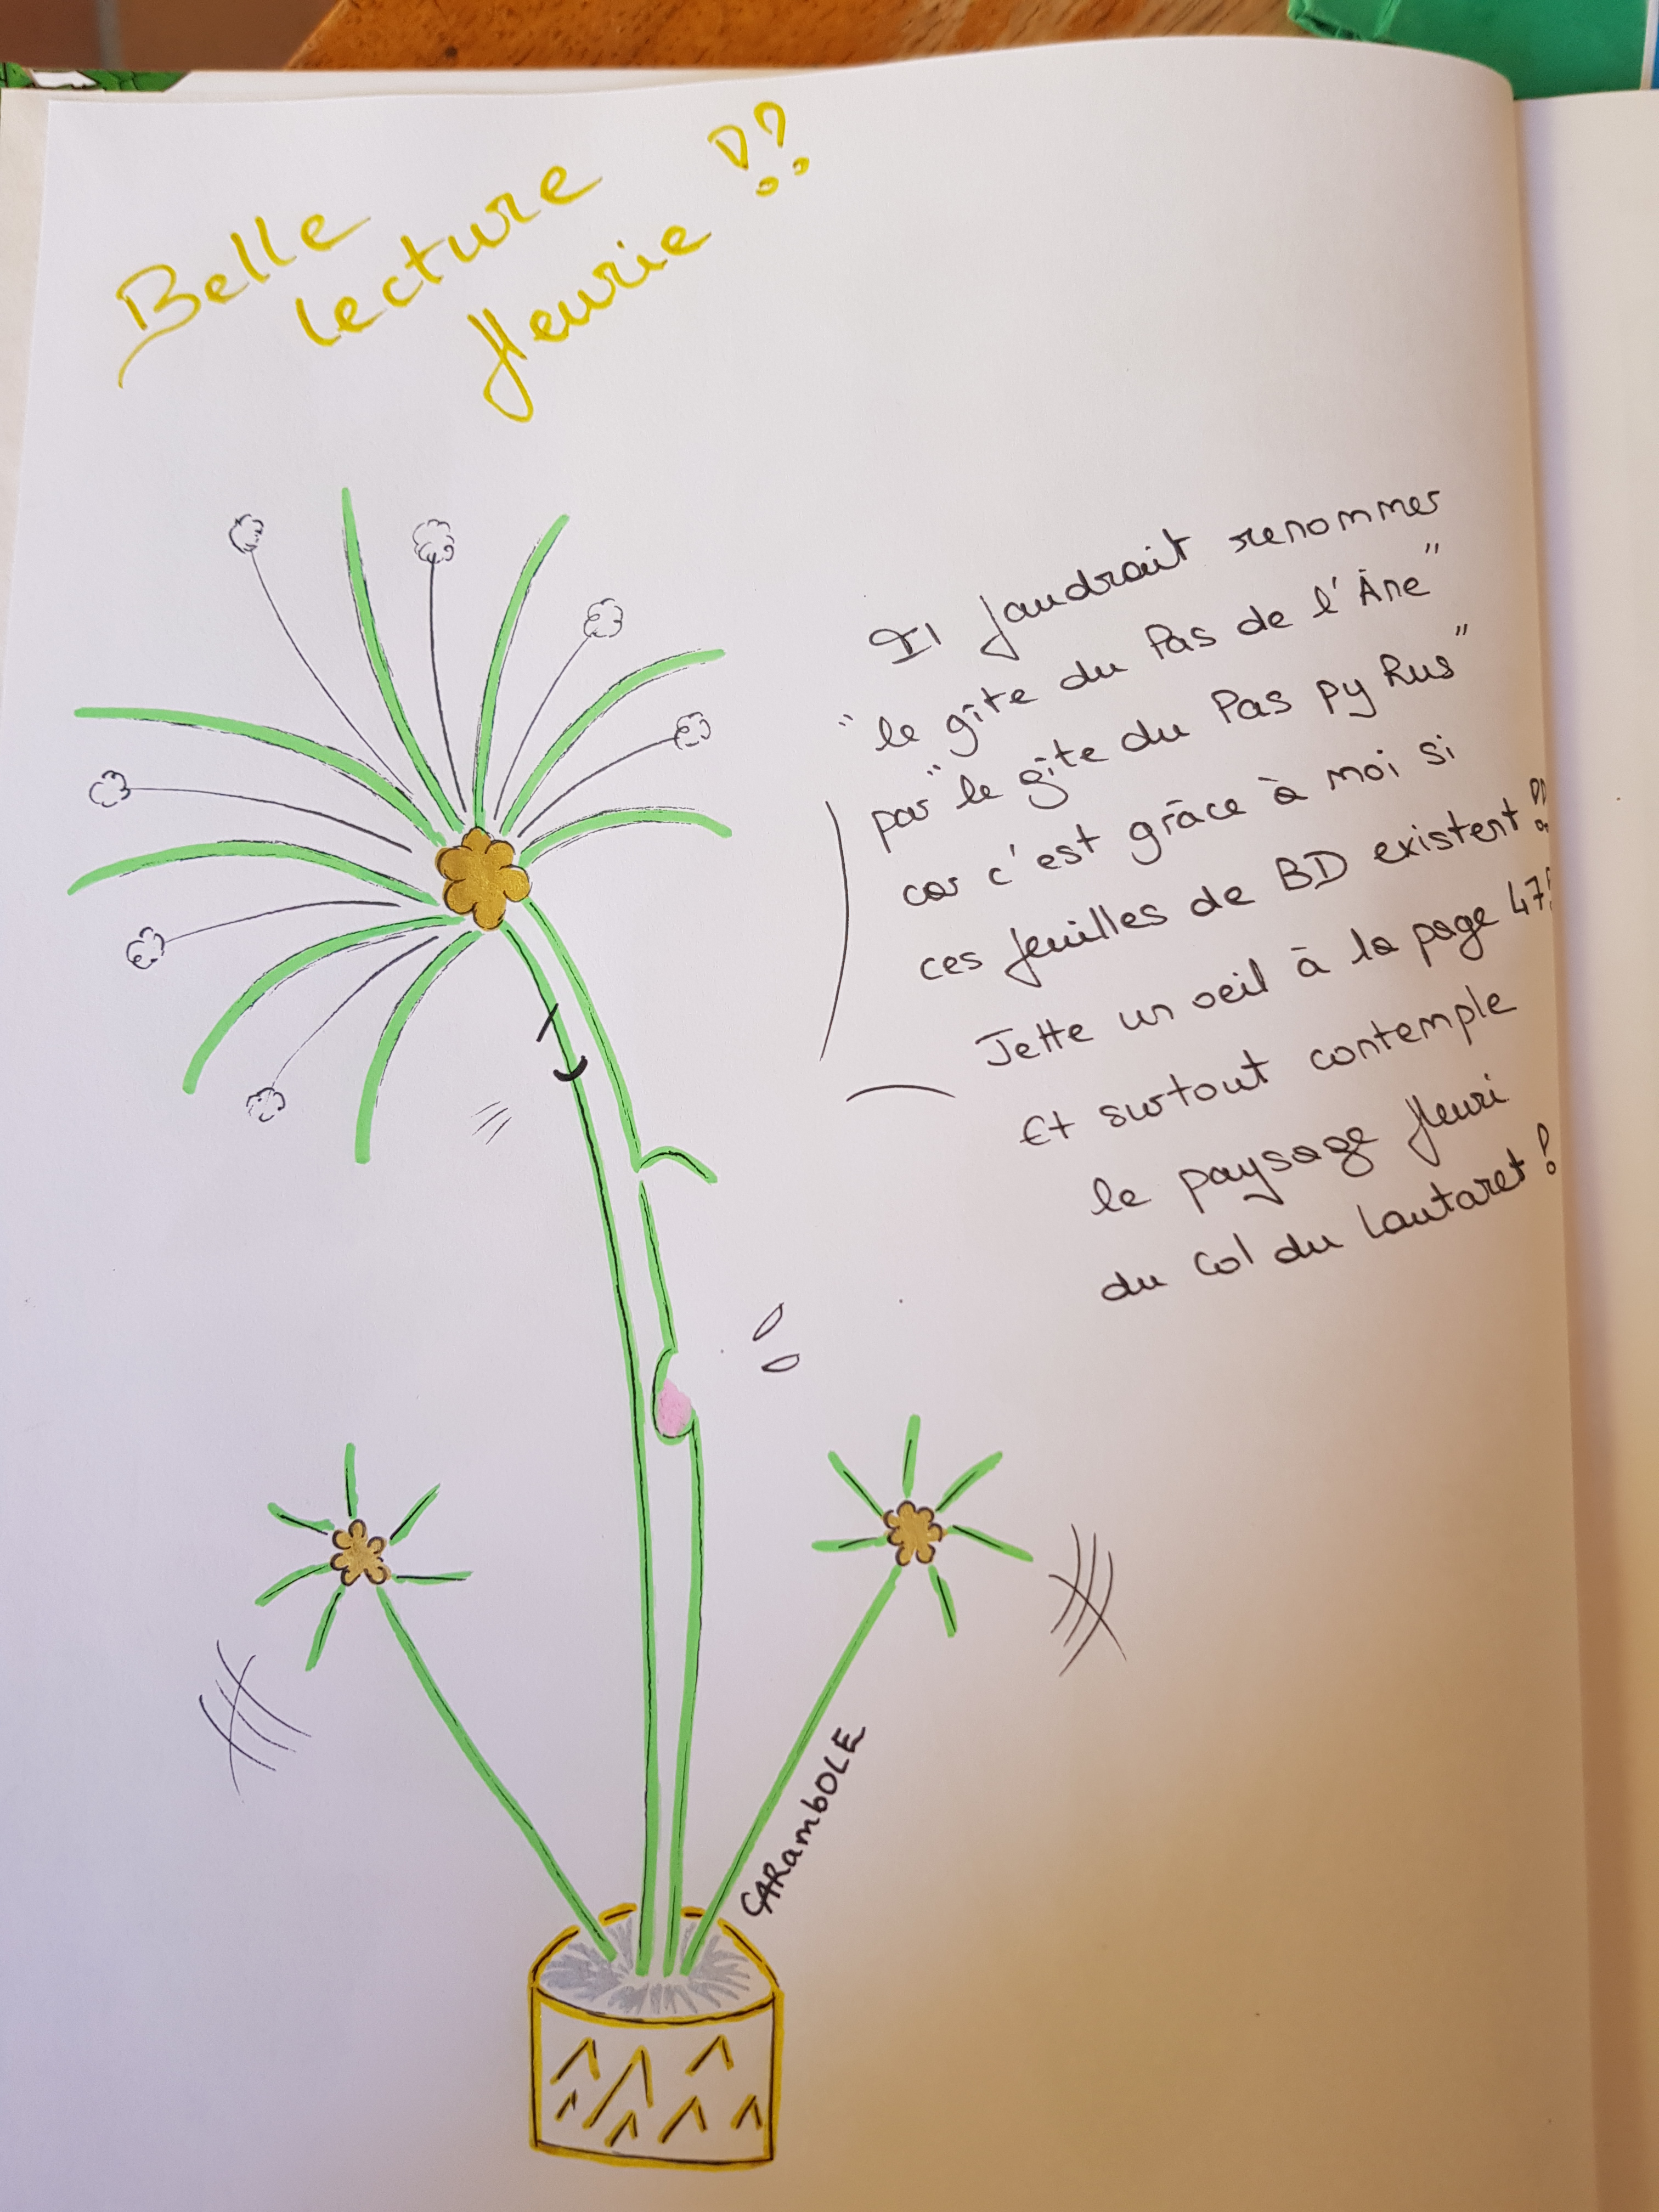 Belle
lecture
fleurie !!
Il faudrait renommer
"le gîte du Pas de l'Âne"
par "le gîte du Pas py Rus"
car c'est grâce à moi si
ces feuilles de BD existent !!
Jette un oeil à la page 47!
Et surtout contemple
le paysage fleuri
du Col du Lautaret !
CARambOLE